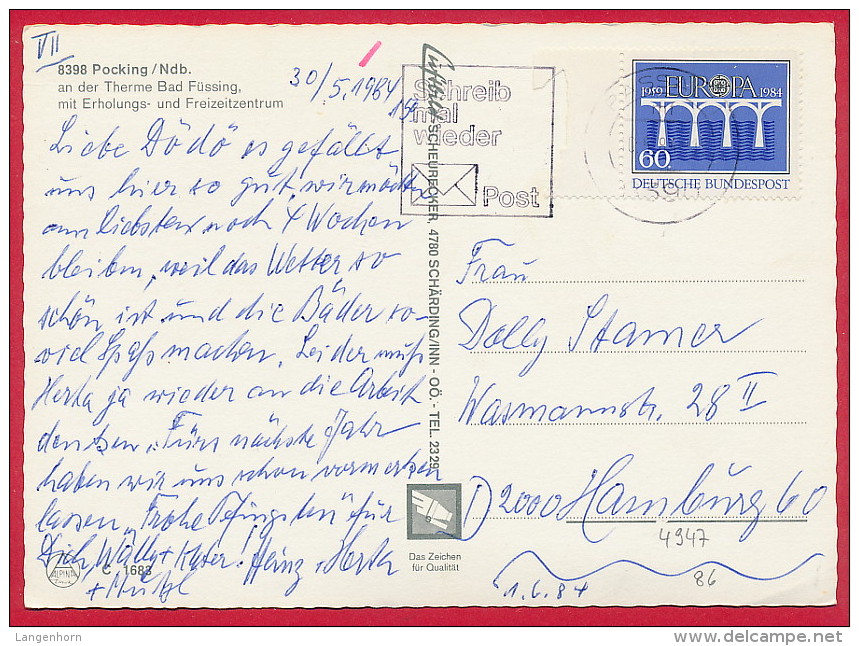 VII
8398 Pocking/Ndb.
an der Therme Bad Füssing,
mit Erholungs- und Freizeitzentrum
30/5.1984
Liebe Dödö es gefällt
uns hier so gut, wir möchten
am liebsten noch 4 Wochen
bleiben, weil das Wetter so
schön ist und die Bäder so-
viel Spaß machen. Leider muß
Herta ja wieder an die Arbeit
denken. Fürs nächste Jahr
haben wir uns schon vormerken
lassen. Frohe Pfingsten für
Dich, Wally + Kater! Heinz, Herta
+
ALPINA
C 1683
Luftbild SCHEURECKER, 4780 SCHÄRDING/INN - OÖ. - TEL. 23 29
Das Zeichen
für Qualität
Schreib
mal
wieder
Post
1959 EUROPA 1984
60
DEUTSCHE BUNDESPOST
Frau
Dolly Stamer
Wasmannstr. 28 II
D 2000 Hamburg 60
4947
1.6.84
86
Langenhorn
delcampe.net